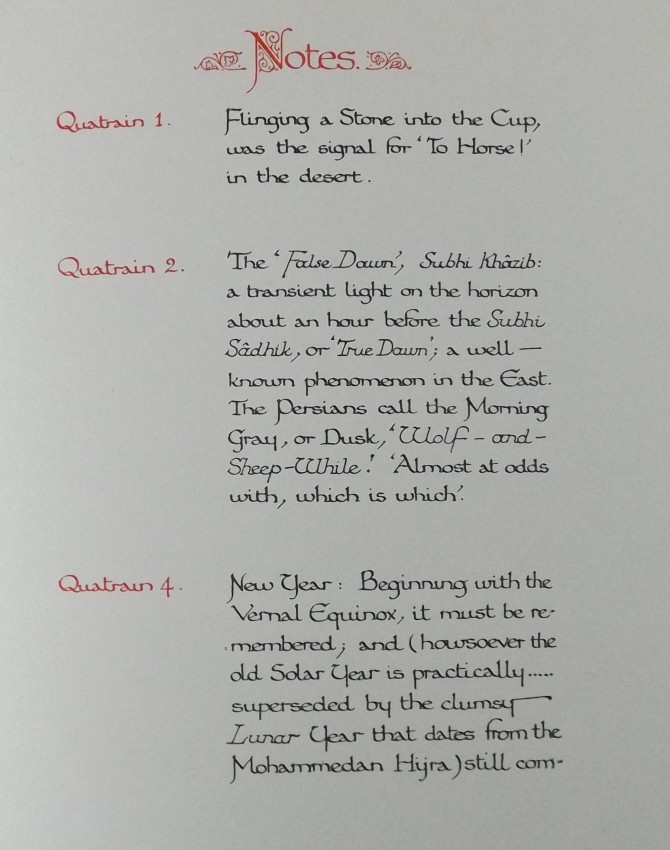 Notes.
Quatrain 1.
Flinging a Stone into the Cup,
was the signal for 'To Horse!'
in the desert.
Quatrain 2.
The 'False Dawn', Subhi Khâzib:
a transient light on the horizon
about an hour before the Subhi
Sâdhik, or 'True Dawn'; a well—
known phenomenon in the East.
The Persians call the Morning
Gray, or Dusk, 'Wolf-and-
Sheep-While.' 'Almost at odds
with, which is which'.
Quatrain 4.
New Year: Beginning with the
Vernal Equinox, it must be re-
-membered; and (howsoever the
old Solar Year is practically.....
superseded by the clumsy
Lunar Year that dates from the
Mohammedan Hijra) still com-